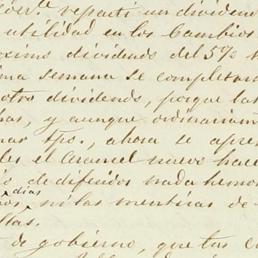 reparti un dividen
utilidad en los Cambios
oximo dividendo del 5%
ma semana se completara
otro dividendo, porque las
has, y aunque ordinariamen
nar tpo., ahora se apre
les el Arancel nuevo hace
de diferidos nada hemos
dias
ni las mentiras de
llas.
de gobierno, que tus